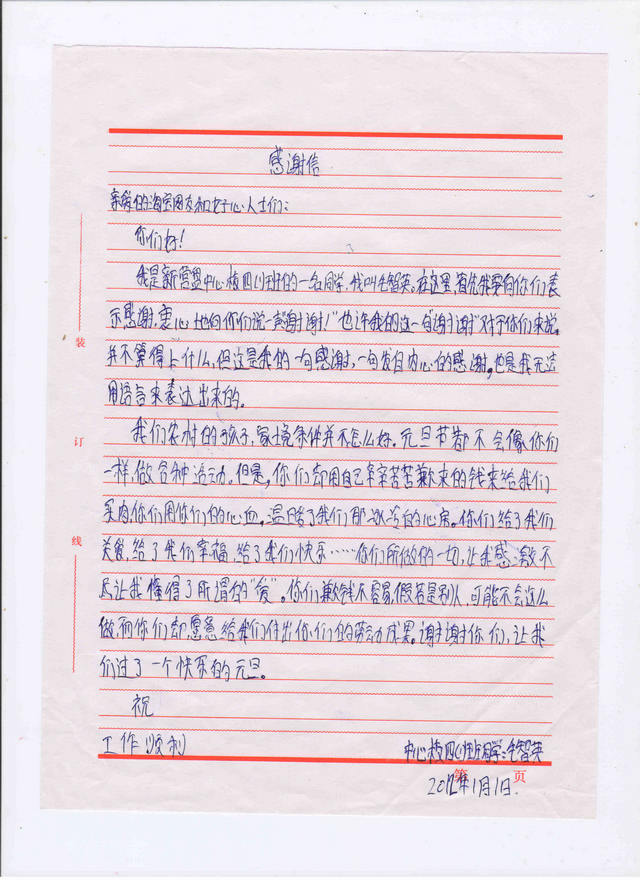 感谢信
亲爱的淘宝网友和好心人士们:
你们好!
我是新营盘中心校四(1)班的一名同学,我叫毛智英。在这里,首先我要向你们表
示感谢,衷心地向你们说一声“谢谢!”也许我的这一句“谢谢”对于你们来说,
并不算得上什么,但这是我的一句感谢,一句发自内心的感谢。也是我无法
用语言来表达出来的。
我们农村的孩子,家境条件并不怎么好。元旦节都不会像你们
一样,做各种活动。但是,你们却用自己辛辛苦苦赚来的钱来给我们
买肉,你们用你们的心血,温暖了我们那冰冷的心房。你们给了我们
关爱,给了我们幸福,给了我们快乐……你们所做的一切,让我感激不
尽,让我懂得了所谓的“爱”。你们赚钱不容易,假若是别人,可能不会这么
做,而你们却愿意给我们付出你们的劳动成果。谢谢你们,让我
们过了一个快乐的元旦。
祝
工作顺利
中心校四(1)班同学:毛智英
2012年1月1日.
第 页
装
订
线